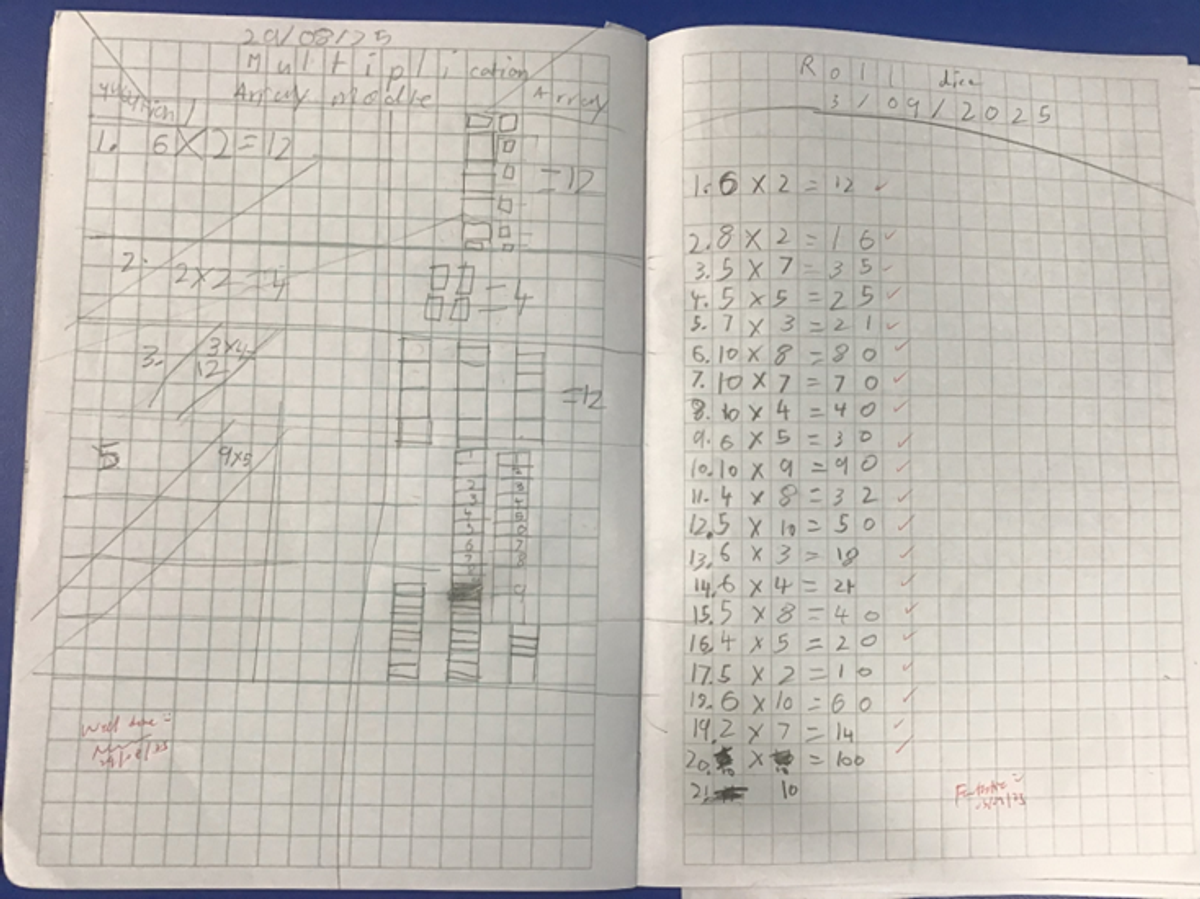 29/08/25
Multiplication
Array modle
question Array
1. 6 X 2 = 12
= 12
2. 2 x 2 = 4
= 4
3. 3 x 4 =
12
= 12
5 9 x 5
1 1
2
2 3
3 4
4 5
5 6
6 7
7 8
9
Well done
29/08/25
Roll dice
3/09/2025
1. 6 x 2 = 12
2. 8 x 2 = 16
3. 5 x 7 = 35
4. 5 x 5 = 25
5. 7 x 3 = 21
6. 10 x 8 = 80
7. 10 x 7 = 70
8. 10 x 4 = 40
9. 6 x 5 = 30
10. 10 x 9 = 90
11. 4 x 8 = 32
12. 5 x 10 = 50
13. 6 x 3 = 18
14. 6 x 4 = 24
15. 5 x 8 = 40
16. 4 x 5 = 20
17. 5 x 2 = 10
18. 6 x 10 = 60
19. 2 x 7 = 14
20. 10 x 10 = 100
21. 10
Fantastic